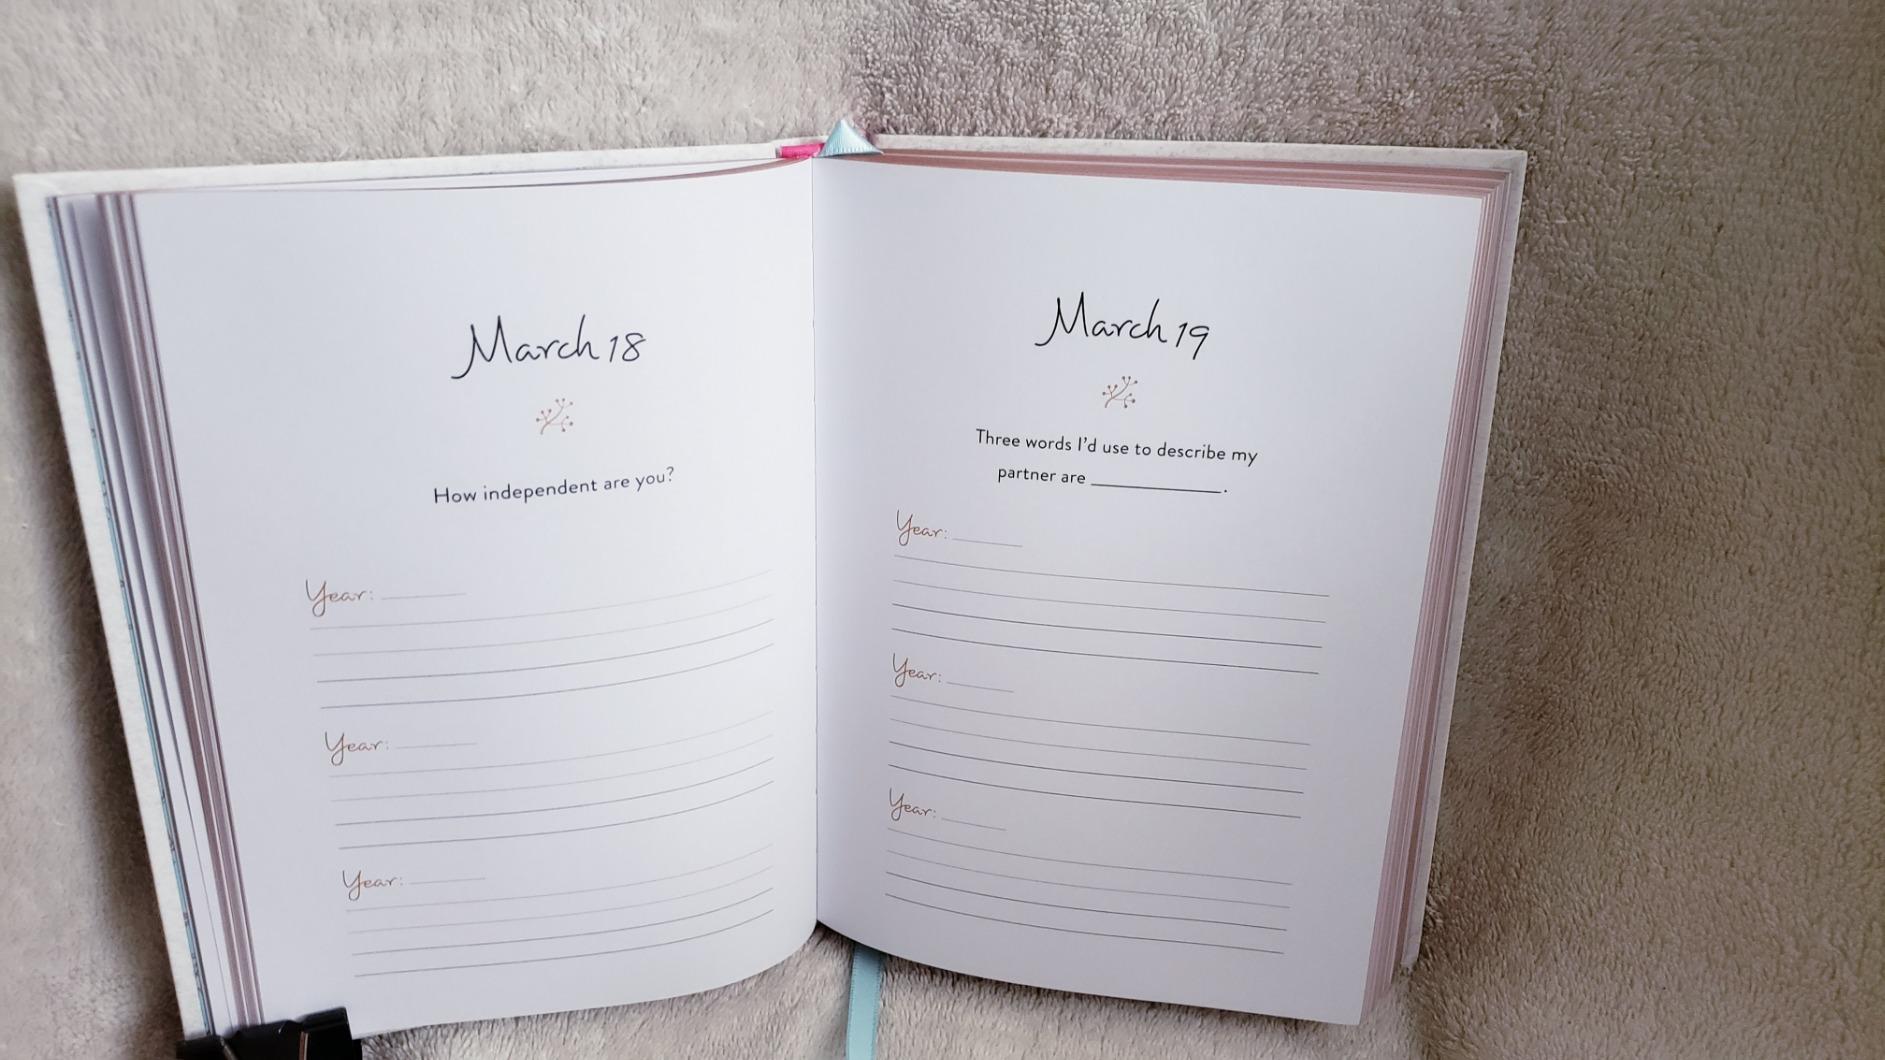 March 18
How independent are you?
Year:
Year:
Year:
March 19
Three words I'd use to describe my
partner are ____________.
Year:
Year:
Year: